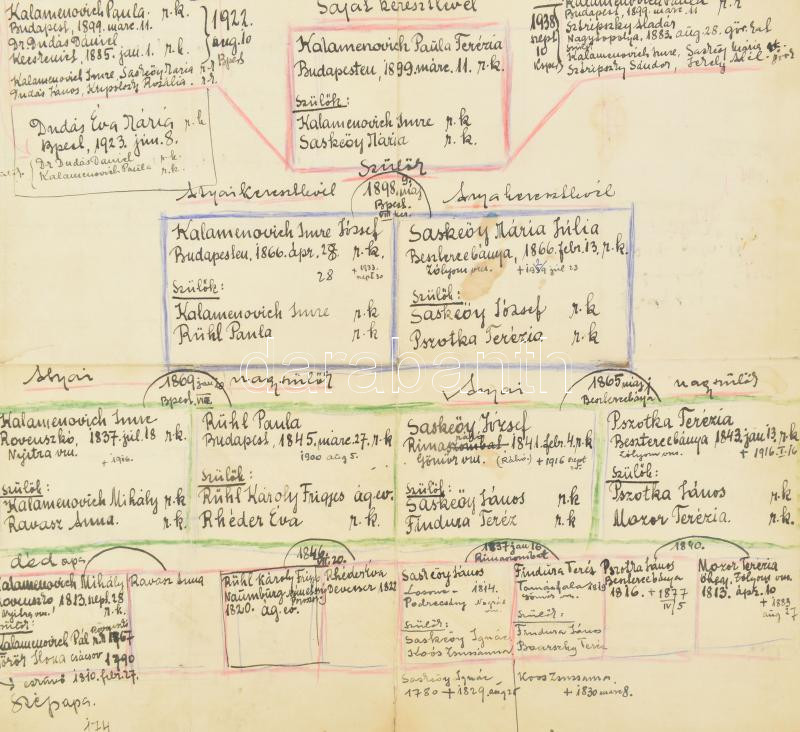 Kalamenovich Paula. r.k.
Budapest, 1899. márc. 11.
Dr Dudás Dániel
1885. jan. 1. r.k.
Kalamenovich Imre, Saskeöy Mária r.k.
Dudás János, Rozália. r.k.
1922.
aug. 10
Bpest
Saját keresztlevél
Kalamenovich Paula Terézia
Budapesten, 1899. márc. 11. r.k.
Szülők:
Kalamenovich Imre r.k
Saskeöy Mária r.k
1938
szept
10
Kalamenovich Paula r.k
Budapest, 1899. márc. 11
1883. aug. 28. gör. kat
Kalamenovich Imre, Saskeöy Mária
Szüripszky Sándor,
Dudás Éva Mária r.k
Bpest, 1923. jún. 8.
Dr Dudás Dániel r.k.
Kalamenovich Paula r.k.
Szülők
Atyai keresztlevél
1898. máj
Bpest.
VIII ker.
Anyai keresztlevél
Kalamenovich Imre József
Budapesten, 1866. ápr. 28 r.k.
28 + 1933. szept 30
Szülők:
Kalamenovich Imre r.k
Rühl Paula r.k
Saskeöy Mária Júlia
Besztercebánya, 1866. febr. 13, r.k.
Zólyom vm. + júl 23
Szülők:
Saskeöy József r.k
Pszotka Terézia r.k
Atyai
1869 jan
Bpest. VIII
nagyszülők
Anyai
1865 máj
Besztercebánya
nagyszülők
Kalamenovich Imre
Rovenszkó, 1837. júl. 18 r.k.
Nyitra vm. + 1916.
Szülők:
Kalamenovich Mihály r.k
Ravasz Anna. r.k.
Rühl Paula
Budapest, 1845. márc. 27. r.k
1900 aug 5.
Szülők:
Rühl Károly Frigyes ág. ev.
Rhéder Éva r.k.
Saskeöy József
1841. febr. 4. r.k
Gömör vm. (Ráhó) + 1916 szept
Szülők:
Saskeöy János r.k
Findura Teréz r.k
Pszotka Terézia
Besztercebánya 1843. jan 13, r.k
Zólyom vm. + 1916. I. 16
Szülők:
Pszotka János r.k.
Mozor Terézia. r.k.
dédapa
1846.
20.
1837 jan 10
Rimaszombat
1840.
Kalamenovich Mihály
Rovenszko 1813. szept. 28
Nyitra vm. r.k.
Szülők:
Kalamenovich Pál r.k 1867
Török Ilona csácsov 1790
→ esküvő 1810. febr. 27.
Szépapa.
174
Ravasz Anna
Rühl Károly Frigy
Naumburg
1820. ág. ev.
Rhéder Éva
Devecser 1822
Saskeöy János
Losonc 1814.
Podrecsány Nógrád
vm.
Szülők:
Saskeöy Ignác
Koós Zsuzsanna
Saskeöy Ignác
1780 + 1829. aug 25
Findura Teréz
Tamásfala 1818
Gömör vm.
Szülők:
Findura János
Teréz
Koos Zsuzsanna
+ 1830 márc 8.
Pszotka János
Besztercebánya
1816. + 1877
IV/5
Mozor Terézia
Zólyom vm.
1813. ápr. 10
+ 1883
aug 27
darabanth